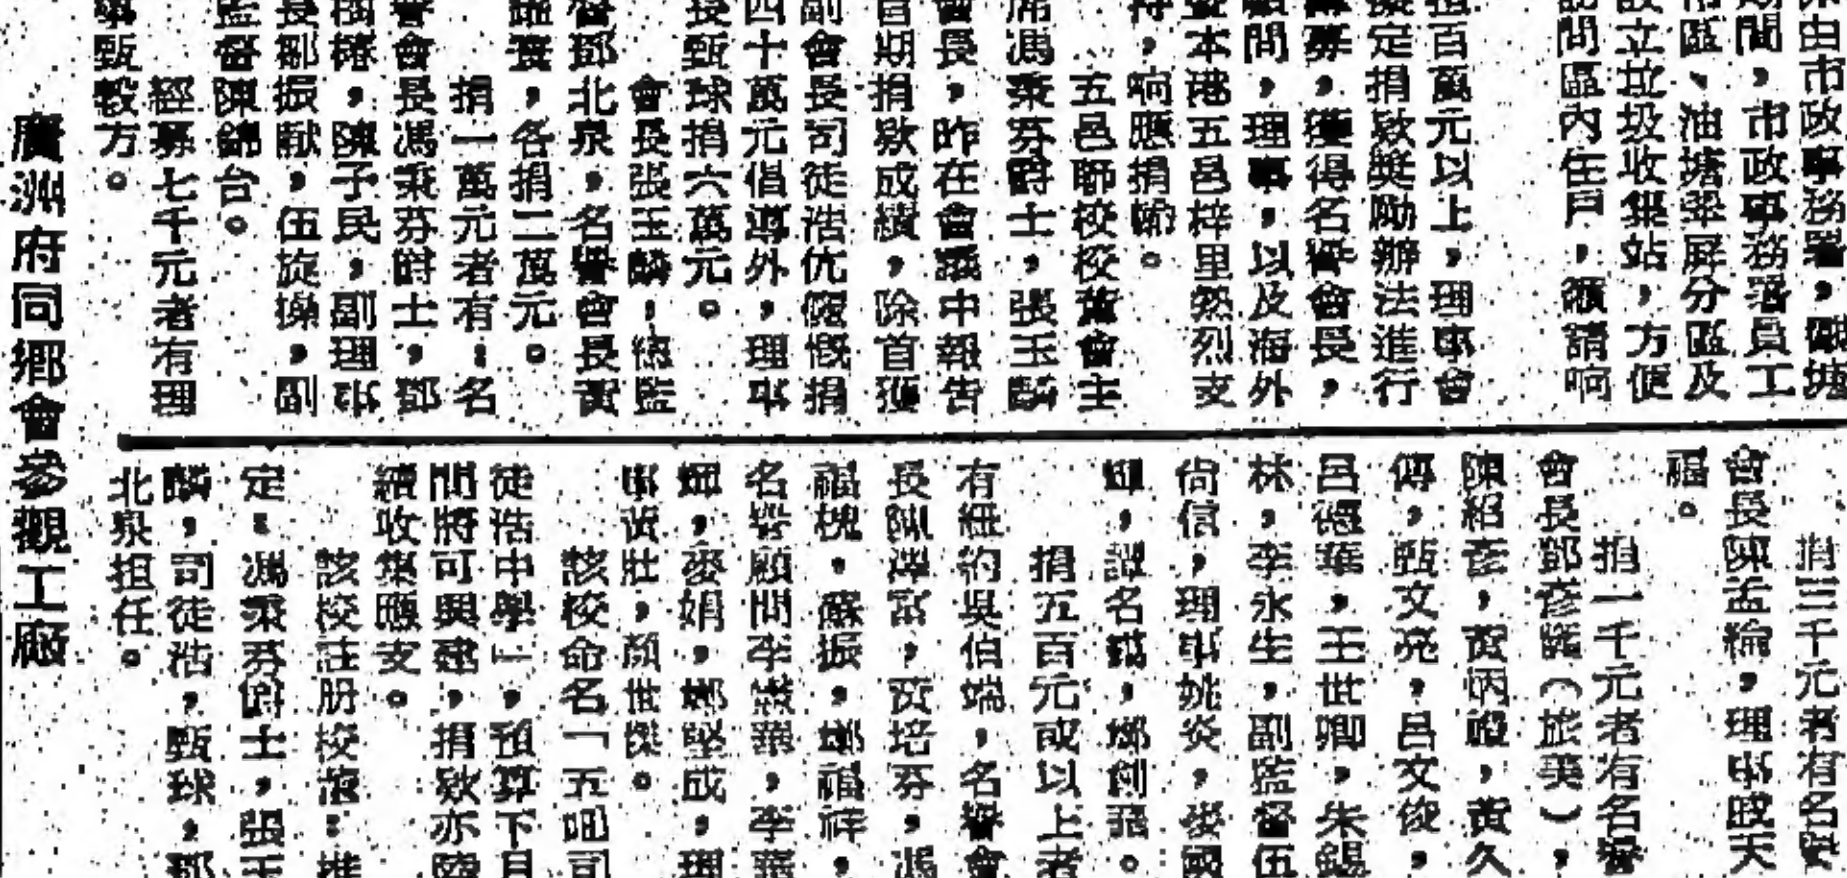 由市政事務署，觀塘
期間，市政事務署員工
市區、油塘翠屏分區及
設立垃圾收集站，方便
訪問區內住戶，籲請响
百萬元以上，理事會
擬定捐欵獎勵辦法進行
募，獲得名譽會長，
顧問，理事，以及海外
暨本港五邑梓里熱烈支
持，响應捐輸。
五邑聯校校董會主
席馮秉芬爵士，張玉麟
會長，昨在會議中報告
首期捐欵成績，除首獲
副會長司徒浩伉儷慨捐
四十萬元倡導外，理事
長甄球捐六萬元。
會長張玉麟，總監
督鄧北泉，名譽會長黃
，各捐二萬元。
捐一萬元者有：名
譽會長馮秉芬爵士，鄧
椿，陳子民，副理事
長鄒振猷，伍旋操，副
監督陳錦台。
經募七千元者有理
事甄毅方。
捐三千元者有名譽
會長陳孟綸，理事
福。
捐一千元者有名譽
會長鄧彥（旅美），
陳紹彥，黃炳，黃久
傅，甄文亮，呂文俊，
呂德華，王世卿，朱錫
林，李永生，副監督伍
尚信，理事姚炎，
，譚名，鄺創。
捐五百元或以上者
有紐約吳伯端，名譽會
長陳澤富，黃培芬，馮
福槐，蘇振，鄺福祥，
名譽顧問李
，麥娟，鄺堅成，理
事黃壯，顏世傑。
該校命名「五邑司
徒浩中學」，預算下月
間將可興建，捐欵亦陸
續收集應支。
該校註册校董：推
定：馮秉芬爵士，張玉
麟，司徒浩，甄球，鄧
北泉担任。
廣洲府同鄉會參觀工廠